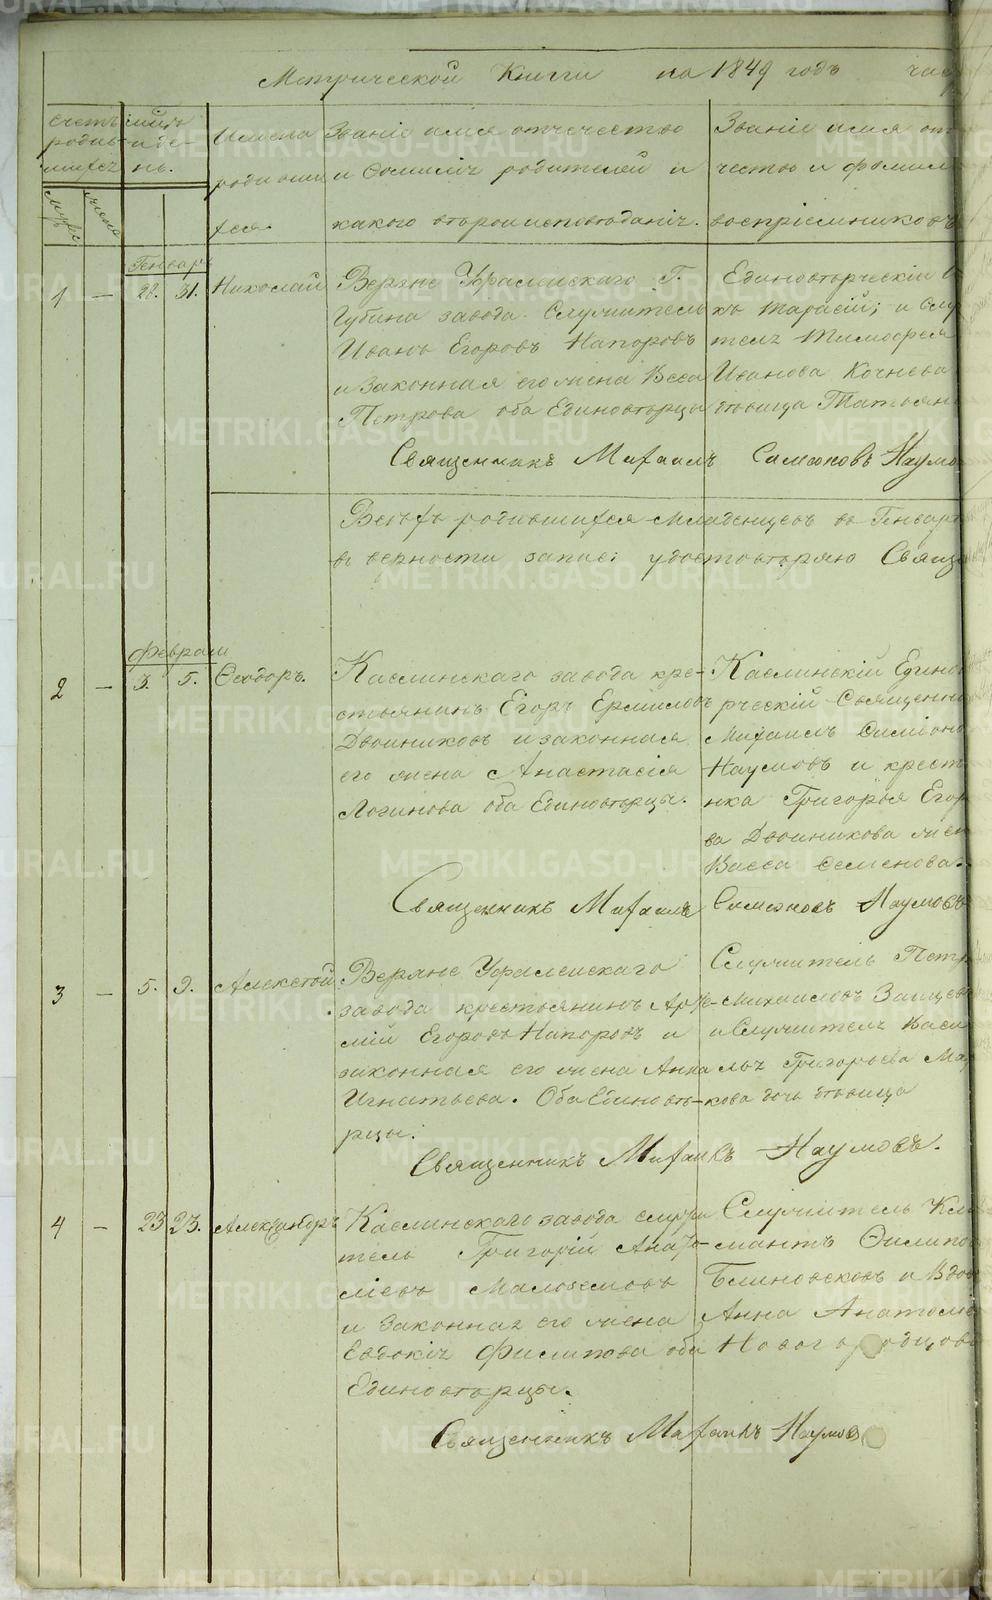 Метрической Книги на 1849 годъ час
Счетъ родив-шихся
мѣсяцъ и де-нь.
Имена родивших хся.
Званіе имя отчечество и Фамиліи родителей и какого вѣроисповѣданія.
Званіе имя от чество и фамил воспріемниковъ
мужес
женск
Генварь
1 — 28. 31. Николай
Верхне Уфалейскаго Г.
Губина завода Служитель
Иванъ Егоровъ Напоровъ
и Законная его жена Васса
Петрова оба Единовѣрцы
Единовѣрческій
къ Тарасій; и Слу
теля Тимофея
Иванова Кочнева
дѣвица Татьян
Священникъ Михаилъ Симеоновъ Наумо
Всѣхъ родившихся младенцевъ въ Генвар
въ верности запис: удостовѣряю Свящ
Февраль
2 — 3. 5. Ѳеодоръ.
Каслинскаго завода кре-
стьянинъ Егоръ Ермиловъ
Двойниковъ и законная
его жена Анастасія
Логинова оба Единовѣрцы.
Каслинскій Едино
рческій Священни
Михаилъ Симеоно
Наумовъ и крест
нка Григорья Егор
ва Двойникова жен
Васса Семенова.
Священникъ Михаилъ Симеоновъ Наумовъ
3 — 5. 9. Алексѣй
Верхне Уфалейскаго
завода крестьянинъ Арте-
мій Егоровъ Напоровъ и
законная его жена Анна
Игнатьева. Оба Единовѣ-
рцы.
Служитель Петр
Михаиловъ Заицевъ
и Служителя Васи
лья Григорьева Мар
кова дочь дѣвица
Священникъ Михаилъ Наумовъ.
4 — 23 23. Александръ
Каслинскаго завода служи
тель Григорій Анато-
ліевъ Малоземовъ
и Законная его жена
Евдокія Филипова оба
Единовѣрцы.
Служитель Кли
мантъ Филипов
Блиновсковъ и Вдов
Анна Анатолье
Новогородцова
Священникъ Михаилъ Наумов
METRIKI.GASO-URAL.RU